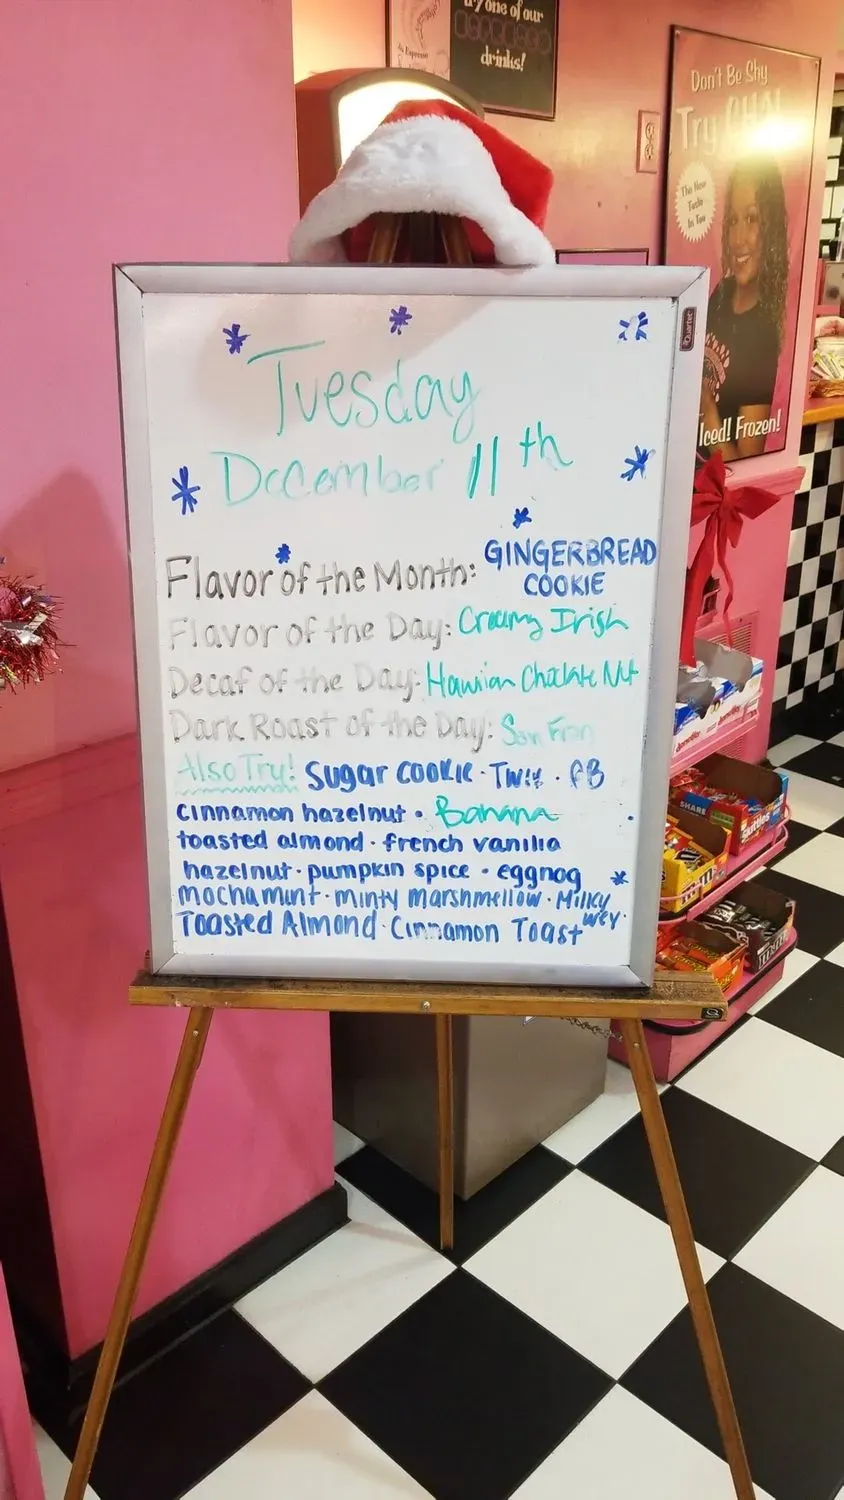 try one of our
drinks!
Don't Be Shy
Try CHAI
The New
Taste
In Tea
Iced! Frozen!
Quartet
Tuesday
December 11th
Flavor of the Month: GINGERBREAD
COOKIE
Flavor of the Day: Creamy Irish
Decaf of the Day: Hawiian Choclate Nut
Dark Roast of the Day: San Fran
Also Try! Sugar cookie · Twix · PB
cinnamon hazelnut · Banana
toasted almond · french vanilla
hazelnut · pumpkin spice · eggnog
mocha mint · minty marshmellow · Milky
Wey ·
Toasted Almond · Cinnamon Toast
SHARE
skittles
m&m's